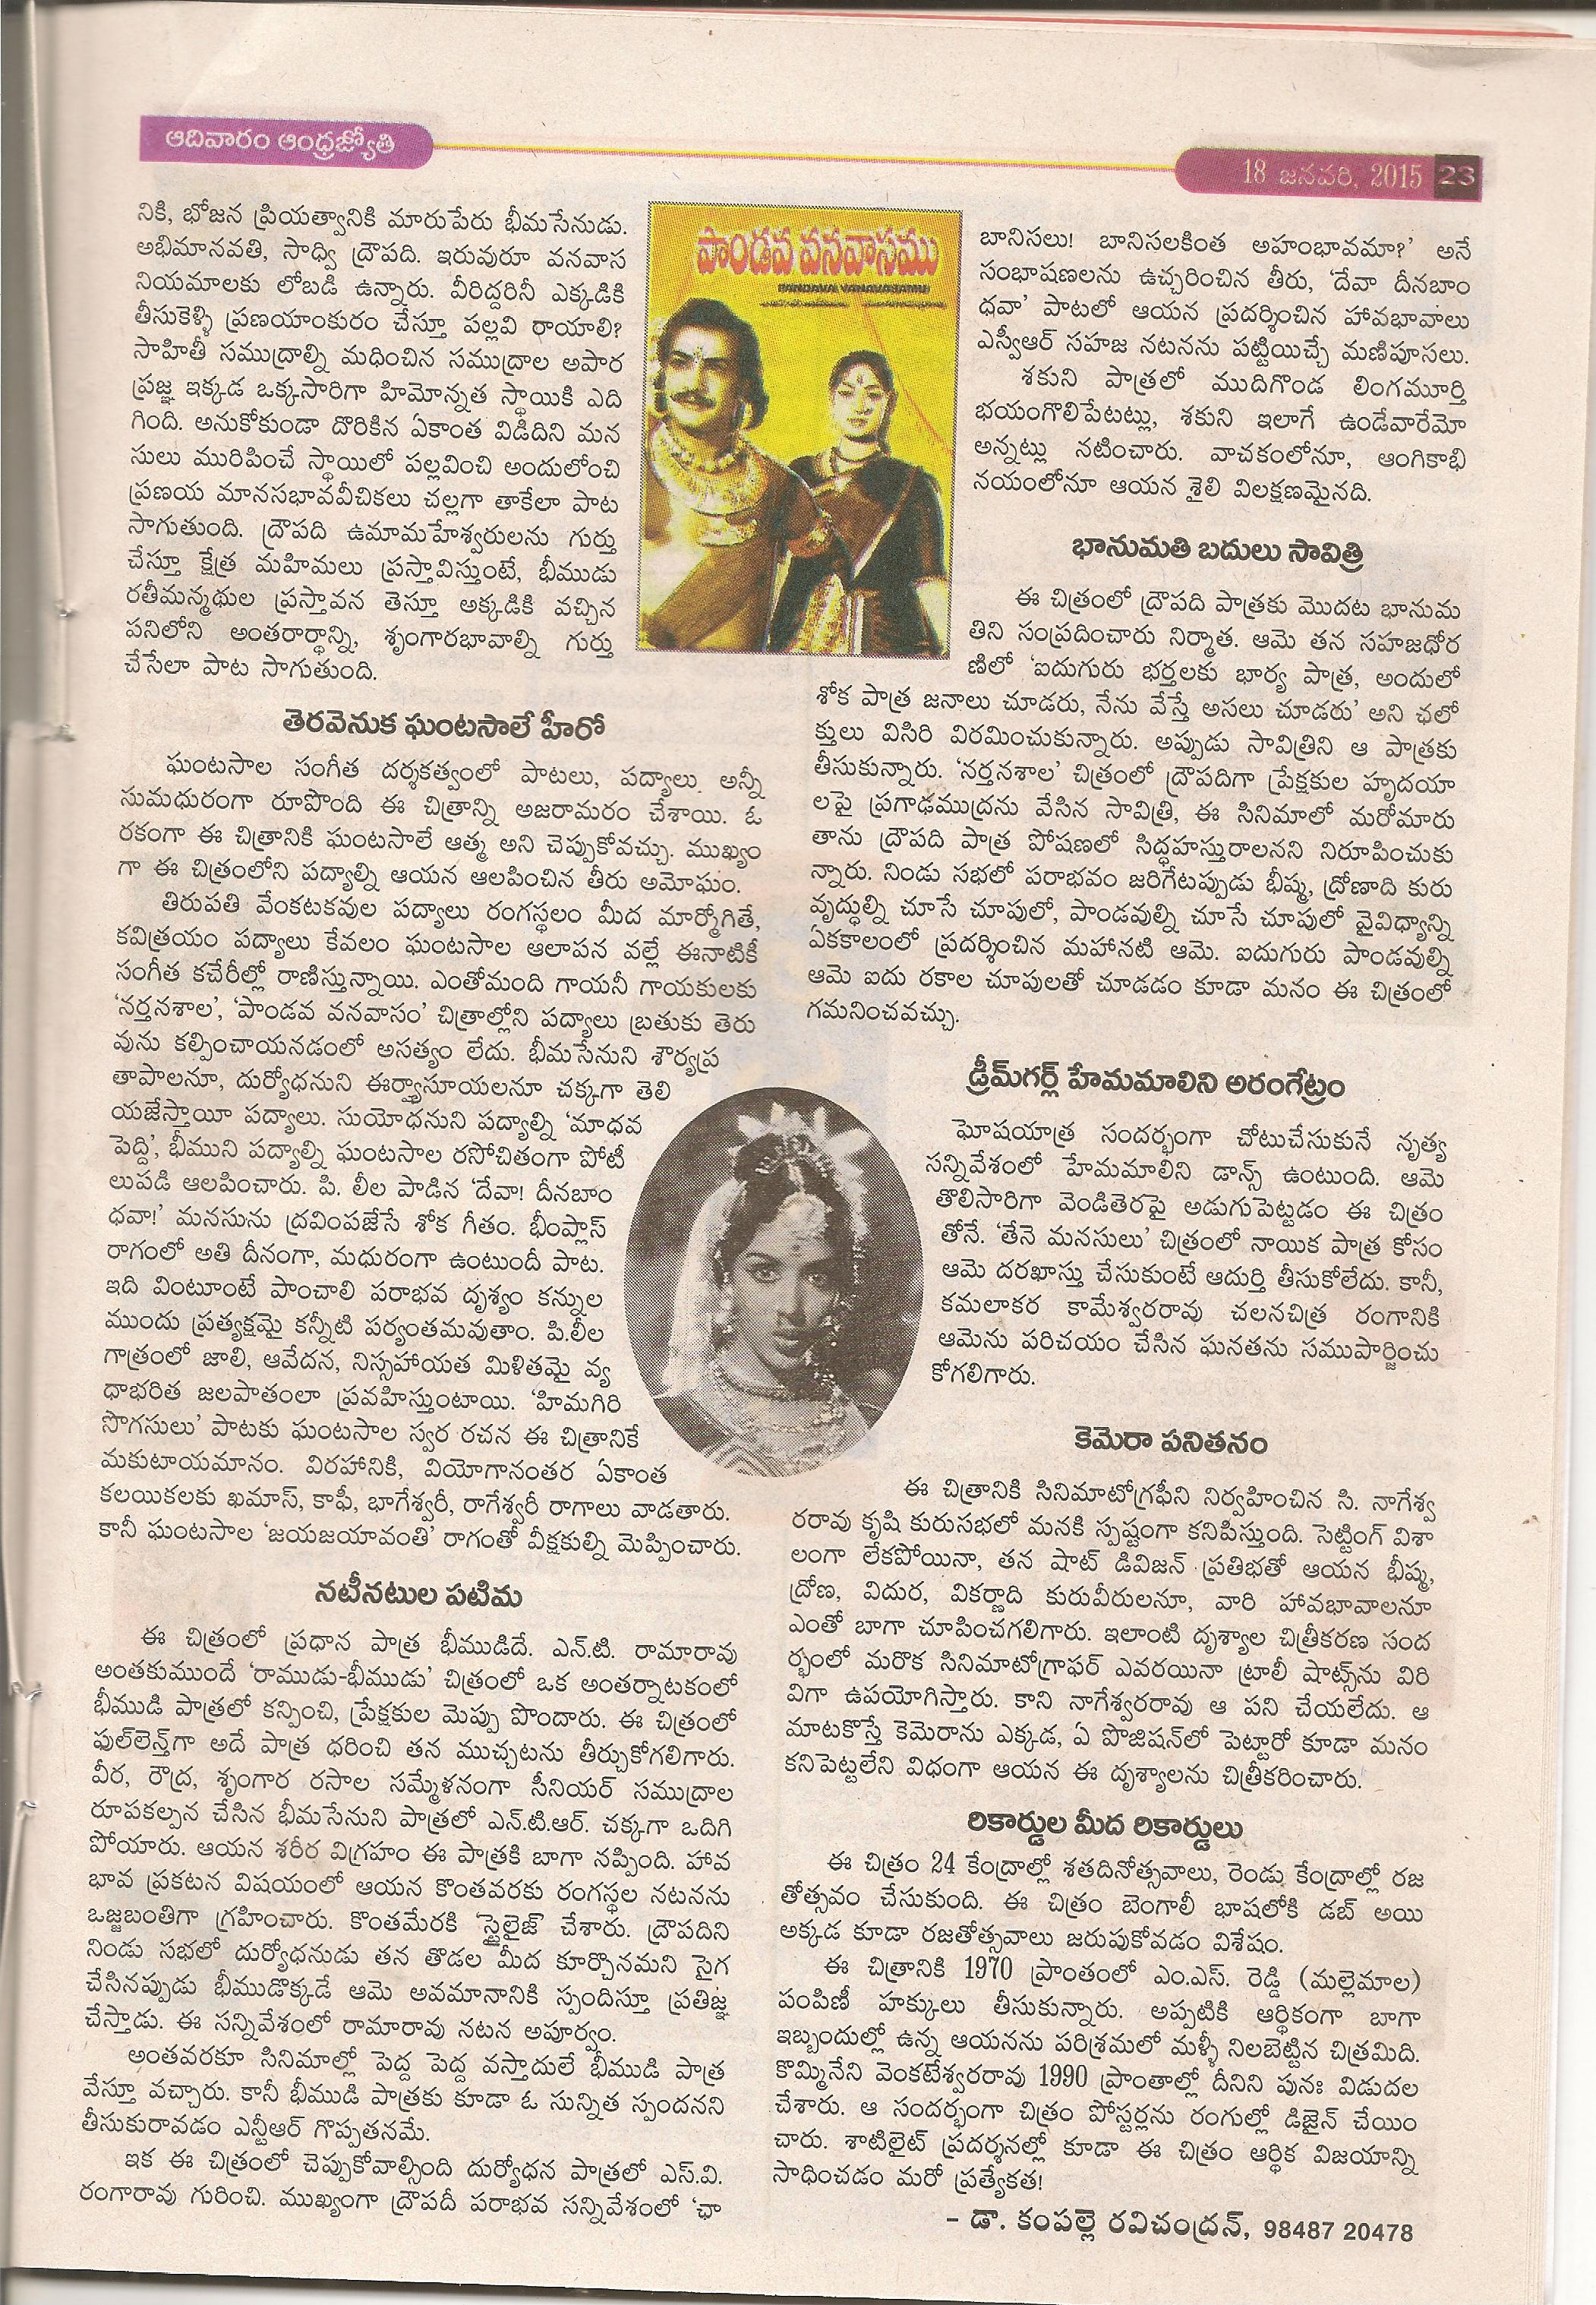 ఆదివారం ఆంధ్రజ్యోతి
18 జనవరి, 2015 23
నికి, భోజన ప్రియత్వానికి మారుపేరు భీమసేనుడు.
అభిమానవతి, సాధ్వి ద్రౌపది. ఇరువురూ వనవాస
నియమాలకు లోబడి ఉన్నారు. వీరిద్దరినీ ఎక్కడికి
తీసుకెళ్ళి ప్రణయాంకురం చేస్తూ పల్లవి రాయాలి?
సాహితీ సముద్రాల్ని మధించిన సముద్రాల అపార
ప్రజ్ఞ ఇక్కడ ఒక్కసారిగా హిమోన్నత స్థాయికి ఎది
గింది. అనుకోకుండా దొరికిన ఏకాంత విడిదిని మన
సులు మురిపించే స్థాయిలో పల్లవించి అందులోంచి
ప్రణయ మానసభావవీచికలు చల్లగా తాకేలా పాట
సాగుతుంది. ద్రౌపది ఉమామహేశ్వరులను గుర్తు
చేస్తూ క్షేత్ర మహిమలు ప్రస్తావిస్తుంటే, భీముడు
రతీమన్మథుల ప్రస్తావన తెస్తూ అక్కడికి వచ్చిన
పనిలోని అంతరార్థాన్ని, శృంగారభావాల్ని గుర్తు
చేసేలా పాట సాగుతుంది.
తెరవెనుక ఘంటసాలే హీరో
ఘంటసాల సంగీత దర్శకత్వంలో పాటలు, పద్యాలు అన్నీ
సుమధురంగా రూపొంది ఈ చిత్రాన్ని అజరామరం చేశాయి. ఓ
రకంగా ఈ చిత్రానికి ఘంటసాలే ఆత్మ అని చెప్పుకోవచ్చు. ముఖ్యం
గా ఈ చిత్రంలోని పద్యాల్ని ఆయన ఆలపించిన తీరు అమోఘం.
తిరుపతి వేంకటకవుల పద్యాలు రంగస్థలం మీద మార్మోగితే,
కవిత్రయం పద్యాలు కేవలం ఘంటసాల ఆలాపన వల్లే ఈనాటికీ
సంగీత కచేరీల్లో రాణిస్తున్నాయి. ఎంతోమంది గాయనీ గాయకులకు
‘నర్తనశాల’, ‘పాండవ వనవాసం’ చిత్రాల్లోని పద్యాలు బ్రతుకు తెరు
వును కల్పించాయనడంలో అసత్యం లేదు. భీమసేనుని శౌర్యప్ర
తాపాలనూ, దుర్యోధనుని ఈర్ష్యాసూయలనూ చక్కగా తెలి
యజేస్తాయీ పద్యాలు. సుయోధనుని పద్యాల్ని ‘మాధవ
పెద్ది’, భీముని పద్యాల్ని ఘంటసాల రసోచితంగా పోటీ
లుపడి ఆలపించారు. పి. లీల పాడిన ‘దేవా! దీనబాం
ధవా!’ మనసును ద్రవింపజేసే శోక గీతం. భీంప్లాస్
రాగంలో అతి దీనంగా, మధురంగా ఉంటుందీ పాట.
ఇది వింటూంటే పాంచాలి పరాభవ దృశ్యం కన్నుల
ముందు ప్రత్యక్షమై కన్నీటి పర్యంతమవుతాం. పి.లీల
గాత్రంలో జాలి, ఆవేదన, నిస్సహాయత మిళితమై వ్య
ధాభరిత జలపాతంలా ప్రవహిస్తుంటాయి. ‘హిమగిరి
సొగసులు’ పాటకు ఘంటసాల స్వర రచన ఈ చిత్రానికే
మకుటాయమానం. విరహానికి, వియోగానంతర ఏకాంత
కలయికలకు ఖమాస్, కాఫీ, భాగేశ్వరీ, రాగేశ్వరీ రాగాలు వాడతారు.
కానీ ఘంటసాల ‘జయజయావంతి’ రాగంతో వీక్షకుల్ని మెప్పించారు.
నటీనటుల పటిమ
ఈ చిత్రంలో ప్రధాన పాత్ర భీముడిదే. ఎన్.టి. రామారావు
అంతకుముందే ‘రాముడు-భీముడు’ చిత్రంలో ఒక అంతర్నాటకంలో
భీముడి పాత్రలో కన్పించి, ప్రేక్షకుల మెప్పు పొందారు. ఈ చిత్రంలో
ఫుల్‌లెన్త్‌గా అదే పాత్ర ధరించి తన ముచ్చటను తీర్చుకోగలిగారు.
వీర, రౌద్ర, శృంగార రసాల సమ్మేళనంగా సీనియర్ సముద్రాల
రూపకల్పన చేసిన భీమసేనుని పాత్రలో ఎన్.టి.ఆర్. చక్కగా ఒదిగి
పోయారు. ఆయన శరీర విగ్రహం ఈ పాత్రకి బాగా నప్పింది. హావ
భావ ప్రకటన విషయంలో ఆయన కొంతవరకు రంగస్థల నటనను
ఒజ్జబంతిగా గ్రహించారు. కొంతమేరకి ‘స్టైలైజ్’ చేశారు. ద్రౌపదిని
నిండు సభలో దుర్యోధనుడు తన తొడల మీద కూర్చొనమని సైగ
చేసినప్పుడు భీముడొక్కడే ఆమె అవమానానికి స్పందిస్తూ ప్రతిజ్ఞ
చేస్తాడు. ఈ సన్నివేశంలో రామారావు నటన అపూర్వం.
అంతవరకూ సినిమాల్లో పెద్ద పెద్ద వస్తాదులే భీముడి పాత్ర
వేస్తూ వచ్చారు. కానీ భీముడి పాత్రకు కూడా ఓ సున్నిత స్పందనని
తీసుకురావడం ఎన్టీఆర్ గొప్పతనమే.
ఇక ఈ చిత్రంలో చెప్పుకోవాల్సింది దుర్యోధన పాత్రలో ఎస్.వి.
రంగారావు గురించి. ముఖ్యంగా ద్రౌపదీ పరాభవ సన్నివేశంలో ‘ఛా
పాండవ వనవాసము
PANDAVA VANAVASAMU
బానిసలు! బానిసలకింత అహంభావమా?’ అనే
సంభాషణలను ఉచ్ఛరించిన తీరు, ‘దేవా దీనబాం
ధవా’ పాటలో ఆయన ప్రదర్శించిన హావభావాలు
ఎస్వీఆర్ సహజ నటనను పట్టియిచ్చే మణిపూసలు.
శకుని పాత్రలో ముదిగొండ లింగమూర్తి
భయంగొలిపేటట్లు, శకుని ఇలాగే ఉండేవారేమో
అన్నట్లు నటించారు. వాచకంలోనూ, ఆంగికాభి
నయంలోనూ ఆయన శైలి విలక్షణమైనది.
భానుమతి బదులు సావిత్రి
ఈ చిత్రంలో ద్రౌపది పాత్రకు మొదట భానుమ
తిని సంప్రదించారు నిర్మాత. ఆమె తన సహజధోర
ణిలో ‘ఐదుగురు భర్తలకు భార్య పాత్ర, అందులో
శోక పాత్ర జనాలు చూడరు, నేను వేస్తే అసలు చూడరు’ అని ఛలో
క్తులు విసిరి విరమించుకున్నారు. అప్పుడు సావిత్రిని ఆ పాత్రకు
తీసుకున్నారు. ‘నర్తనశాల’ చిత్రంలో ద్రౌపదిగా ప్రేక్షకుల హృదయా
లపై ప్రగాఢముద్రను వేసిన సావిత్రి, ఈ సినిమాలో మరోమారు
తాను ద్రౌపది పాత్ర పోషణలో సిద్ధహస్తురాలనని నిరూపించుకు
న్నారు. నిండు సభలో పరాభవం జరిగేటప్పుడు భీష్మ, ద్రోణాది కురు
వృద్ధుల్ని చూసే చూపులో, పాండవుల్ని చూసే చూపులో వైవిధ్యాన్ని
ఏకకాలంలో ప్రదర్శించిన మహానటి ఆమె. ఐదుగురు పాండవుల్ని
ఆమె ఐదు రకాల చూపులతో చూడడం కూడా మనం ఈ చిత్రంలో
గమనించవచ్చు.
డ్రీమ్‌గర్ల్ హేమమాలిని అరంగేట్రం
ఘోషయాత్ర సందర్భంగా చోటుచేసుకునే నృత్య
సన్నివేశంలో హేమమాలిని డాన్స్ ఉంటుంది. ఆమె
తొలిసారిగా వెండితెరపై అడుగుపెట్టడం ఈ చిత్రం
తోనే. ‘తేనె మనసులు’ చిత్రంలో నాయిక పాత్ర కోసం
ఆమె దరఖాస్తు చేసుకుంటే ఆదుర్తి తీసుకోలేదు. కానీ,
కమలాకర కామేశ్వరరావు చలనచిత్ర రంగానికి
ఆమెను పరిచయం చేసిన ఘనతను సముపార్జించు
కోగలిగారు.
కెమెరా పనితనం
ఈ చిత్రానికి సినిమాటోగ్రఫీని నిర్వహించిన సి. నాగేశ్వ
రరావు కృషి కురుసభలో మనకి స్పష్టంగా కనిపిస్తుంది. సెట్టింగ్ విశా
లంగా లేకపోయినా, తన షాట్ డివిజన్ ప్రతిభతో ఆయన భీష్మ,
ద్రోణ, విదుర, వికర్ణాది కురువీరులనూ, వారి హావభావాలనూ
ఎంతో బాగా చూపించగలిగారు. ఇలాంటి దృశ్యాల చిత్రీకరణ సంద
ర్భంలో మరొక సినిమాటోగ్రాఫర్ ఎవరయినా ట్రాలీ షాట్స్‌ను విరి
విగా ఉపయోగిస్తారు. కాని నాగేశ్వరరావు ఆ పని చేయలేదు. ఆ
మాటకొస్తే కెమెరాను ఎక్కడ, ఏ పొజిషన్‌లో పెట్టారో కూడా మనం
కనిపెట్టలేని విధంగా ఆయన ఈ దృశ్యాలను చిత్రీకరించారు.
రికార్డుల మీద రికార్డులు
ఈ చిత్రం 24 కేంద్రాల్లో శతదినోత్సవాలు, రెండు కేంద్రాల్లో రజ
తోత్సవం చేసుకుంది. ఈ చిత్రం బెంగాలీ భాషలోకి డబ్ అయి
అక్కడ కూడా రజతోత్సవాలు జరుపుకోవడం విశేషం.
ఈ చిత్రానికి 1970 ప్రాంతంలో ఎం.ఎస్. రెడ్డి (మల్లెమాల)
పంపిణీ హక్కులు తీసుకున్నారు. అప్పటికి ఆర్థికంగా బాగా
ఇబ్బందుల్లో ఉన్న ఆయనను పరిశ్రమలో మళ్ళీ నిలబెట్టిన చిత్రమిది.
కొమ్మినేని వెంకటేశ్వరరావు 1990 ప్రాంతాల్లో దీనిని పునః విడుదల
చేశారు. ఆ సందర్భంగా చిత్రం పోస్టర్లను రంగుల్లో డిజైన్ చేయిం
చారు. శాటిలైట్ ప్రదర్శనల్లో కూడా ఈ చిత్రం ఆర్థిక విజయాన్ని
సాధించడం మరో ప్రత్యేకత!
– డా. కంపల్లె రవిచంద్రన్, 98487 20478